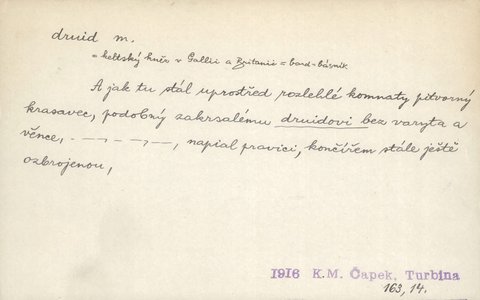 druid m.
= keltský kněz v Gallii a Britanii = bard-básník
A jak tu stál uprostřed rozlehlé komnaty pitvorný
krasavec, podobný zakrsalému druidovi bez varyta a
věnce, — — , — — , napial pravici, končířem stále ještě
ozbrojenou,
1916 K.M. Čapek, Turbina
163, 14.